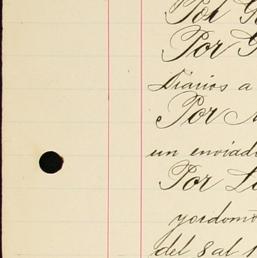 Por G
Por G
Diarios a
Por
un enviad
Por
yordomo
del 8 al 1